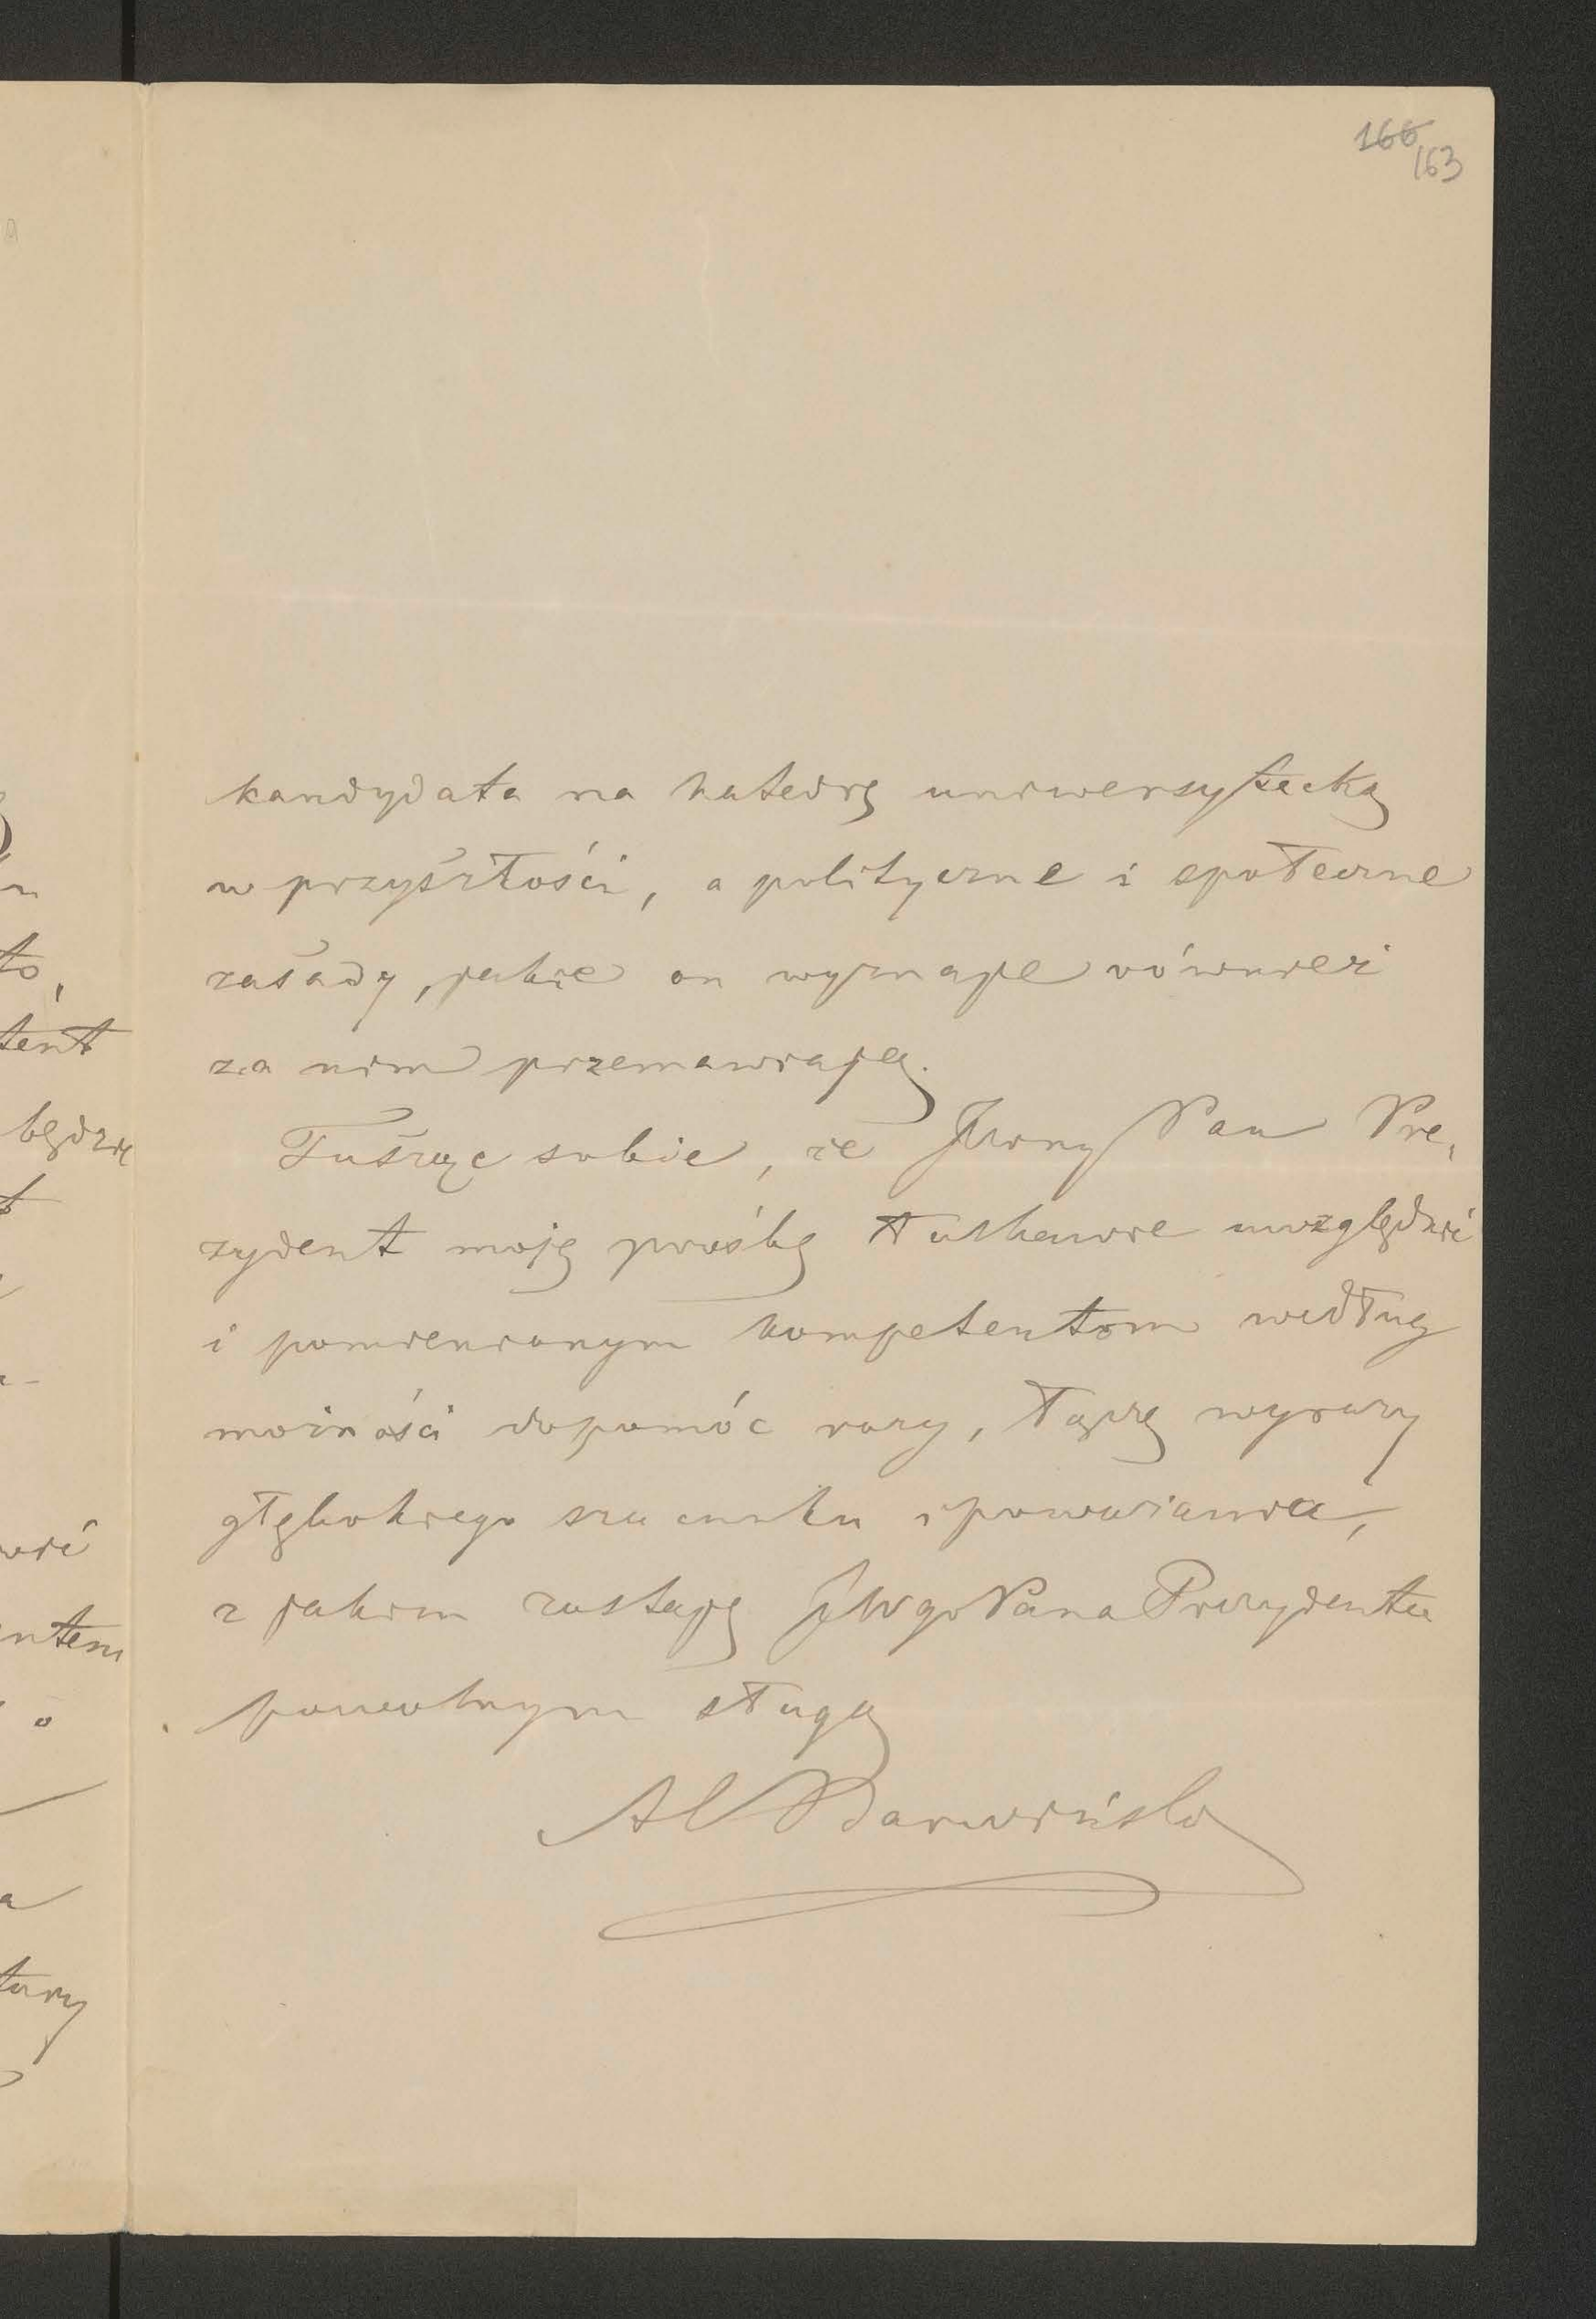 166
163
kandydata na katedrę uniwersytecką
w przyszłości, a polityczne i społeczne
zasady, jakie on wyznaje również
za nim przemawiają.
Tusząc sobie, że JWny Pan Pre-
zydent moję prośbę łaskawie uwzględnić
i pomienionym kompetentom według
możności dopomóc raczy, łączę wyrazy
głębokiego szacunku i poważania,
z jakim zostaję JWgo Pana Prezydenta
powolnym sługą
Al Barwiński
to,
tent
będzie